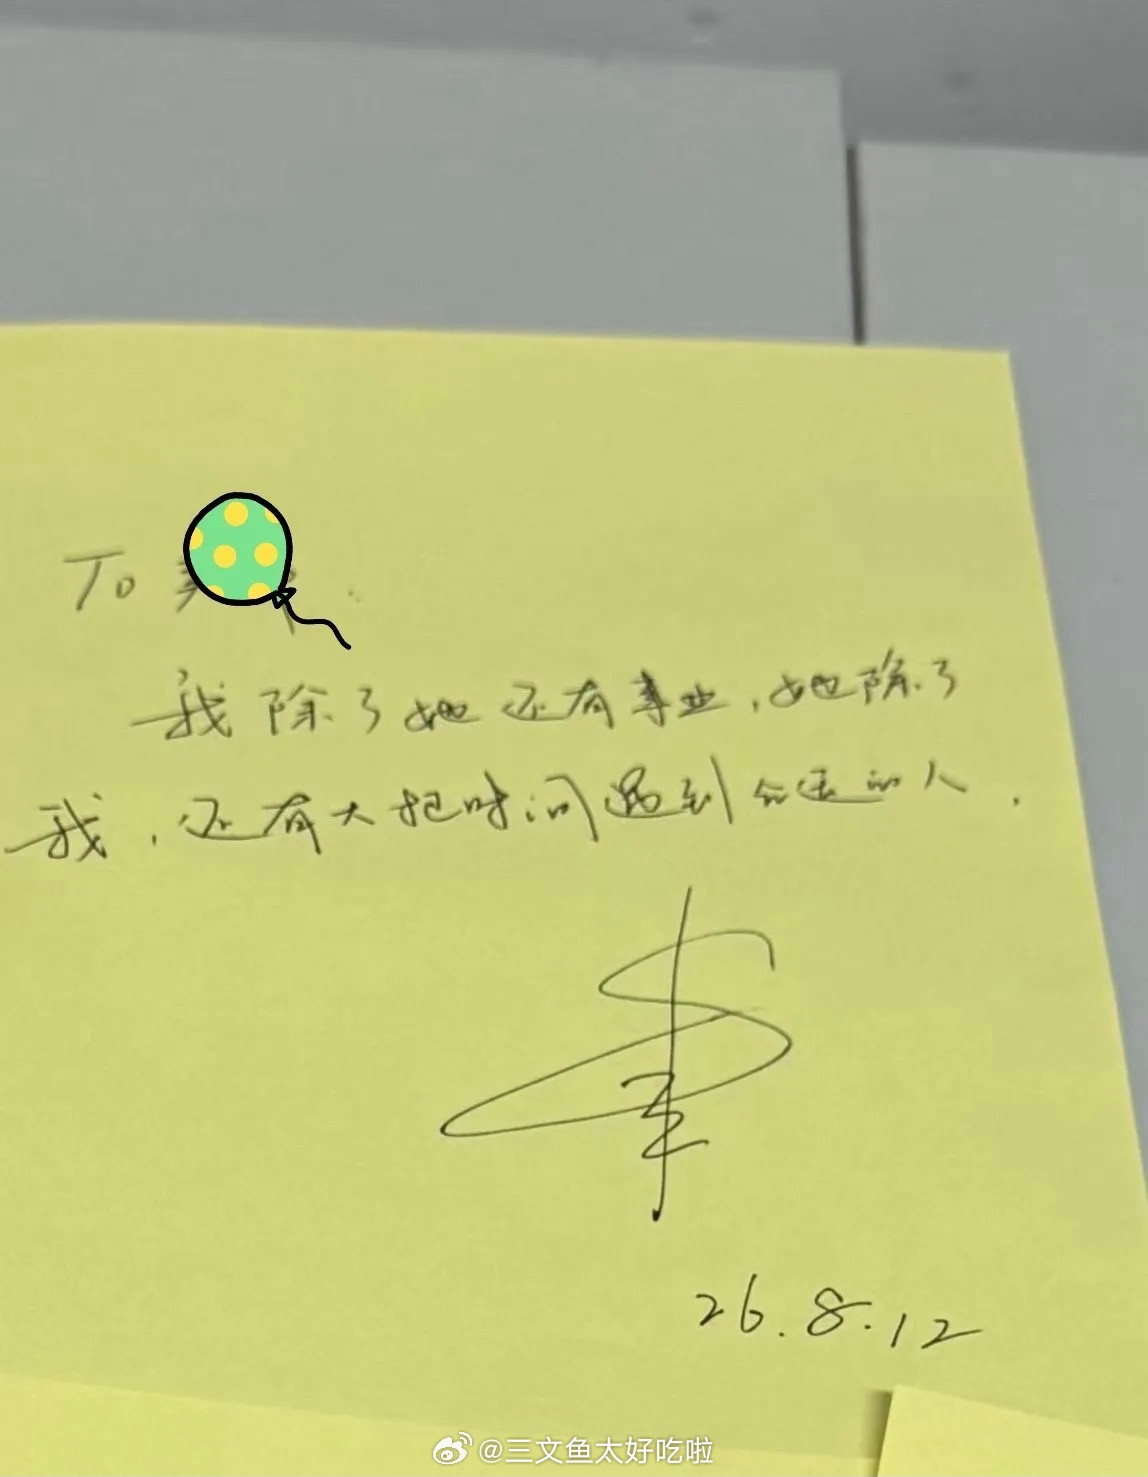 To
我除了她还有事业，她除了
我，还有大把时间遇到合适的人．
26.8.12
@三文鱼太好吃啦